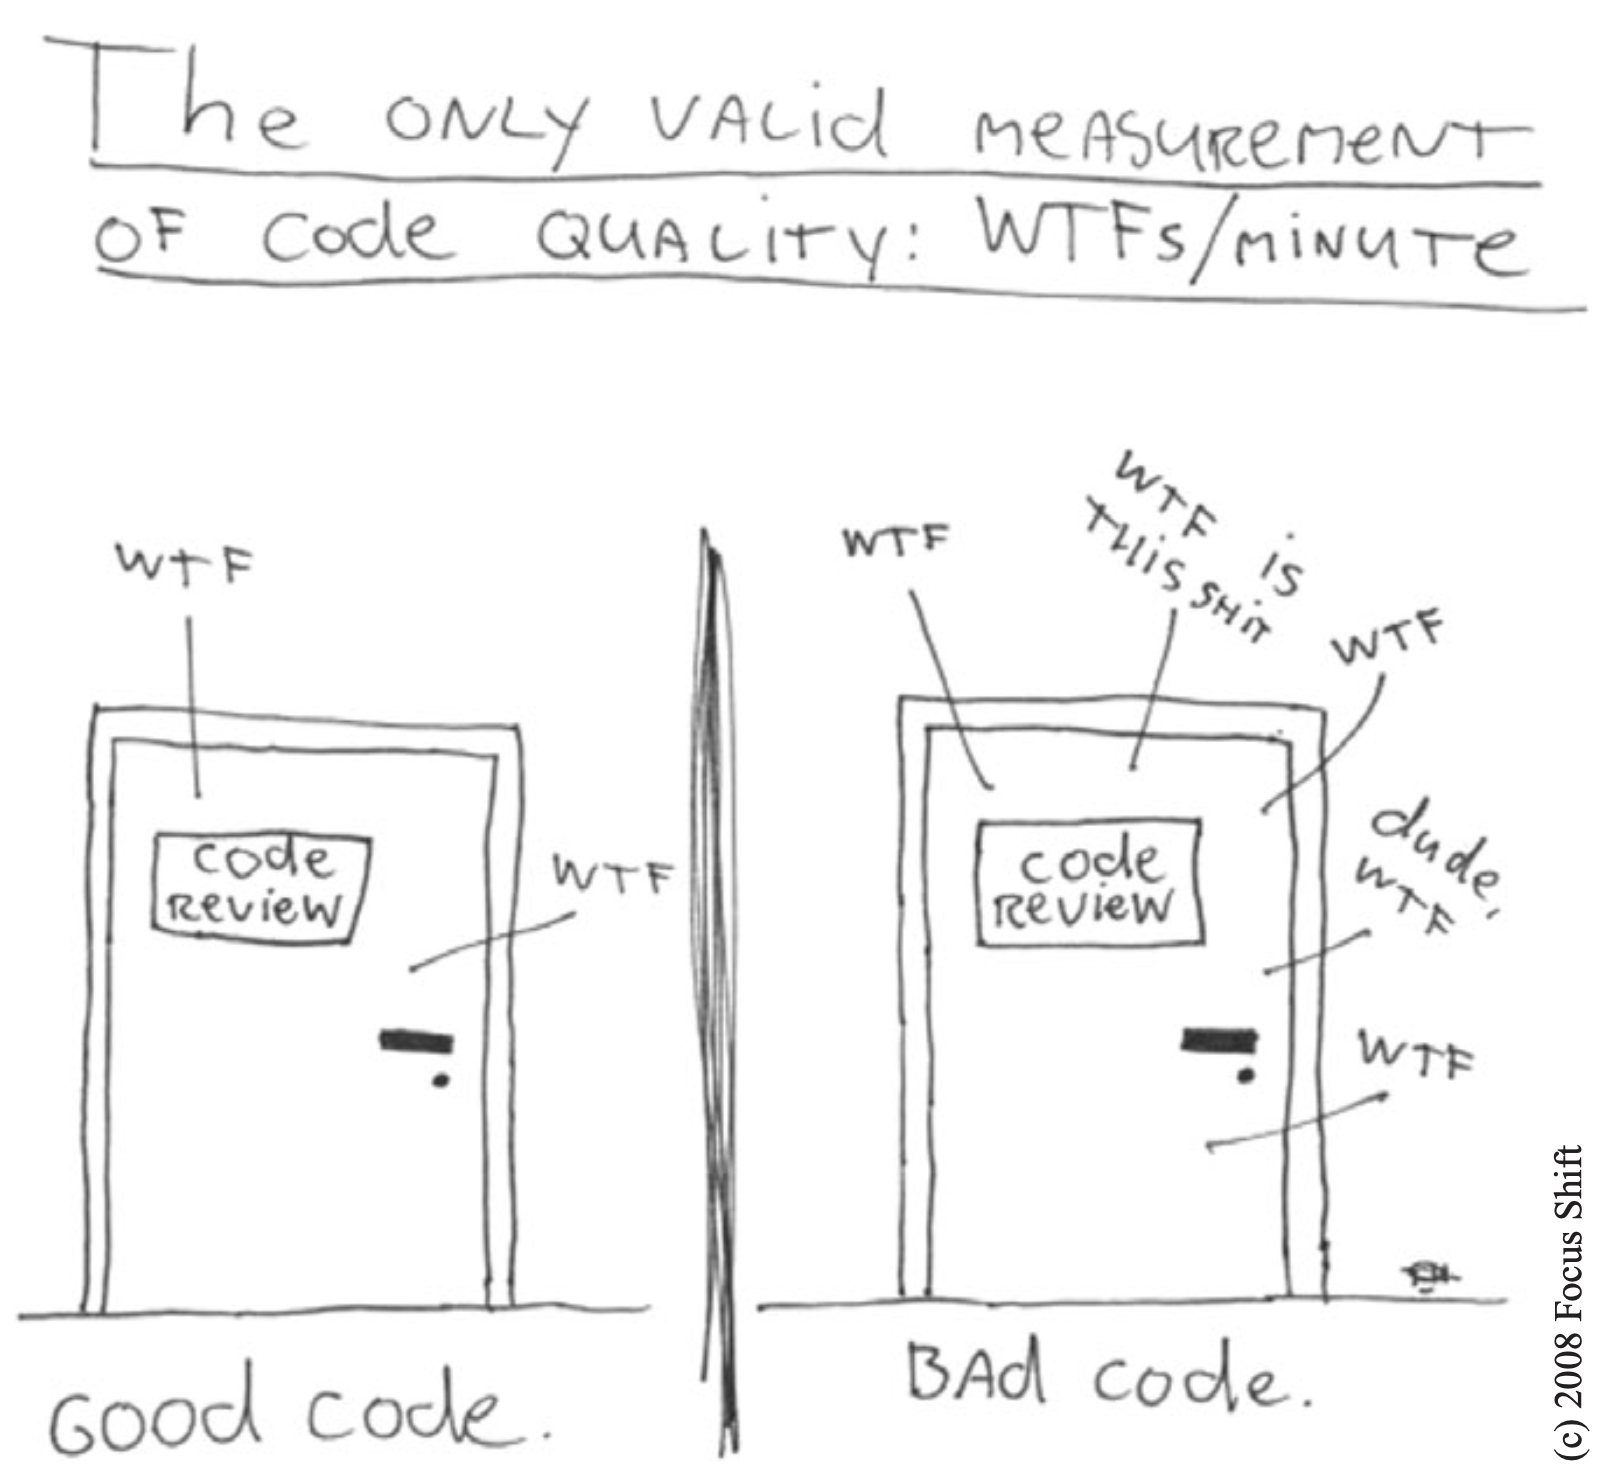 The ONLY VALid MeASUReMeNT
OF Code QUALiTy: WTFs/MiNUTe
WTF
code
Review
WTF
Good code.
WTF
WTF is
THis SHiT
WTF
code
Review
dude,
WTF
WTF
BAd code.
(c) 2008 Focus Shift